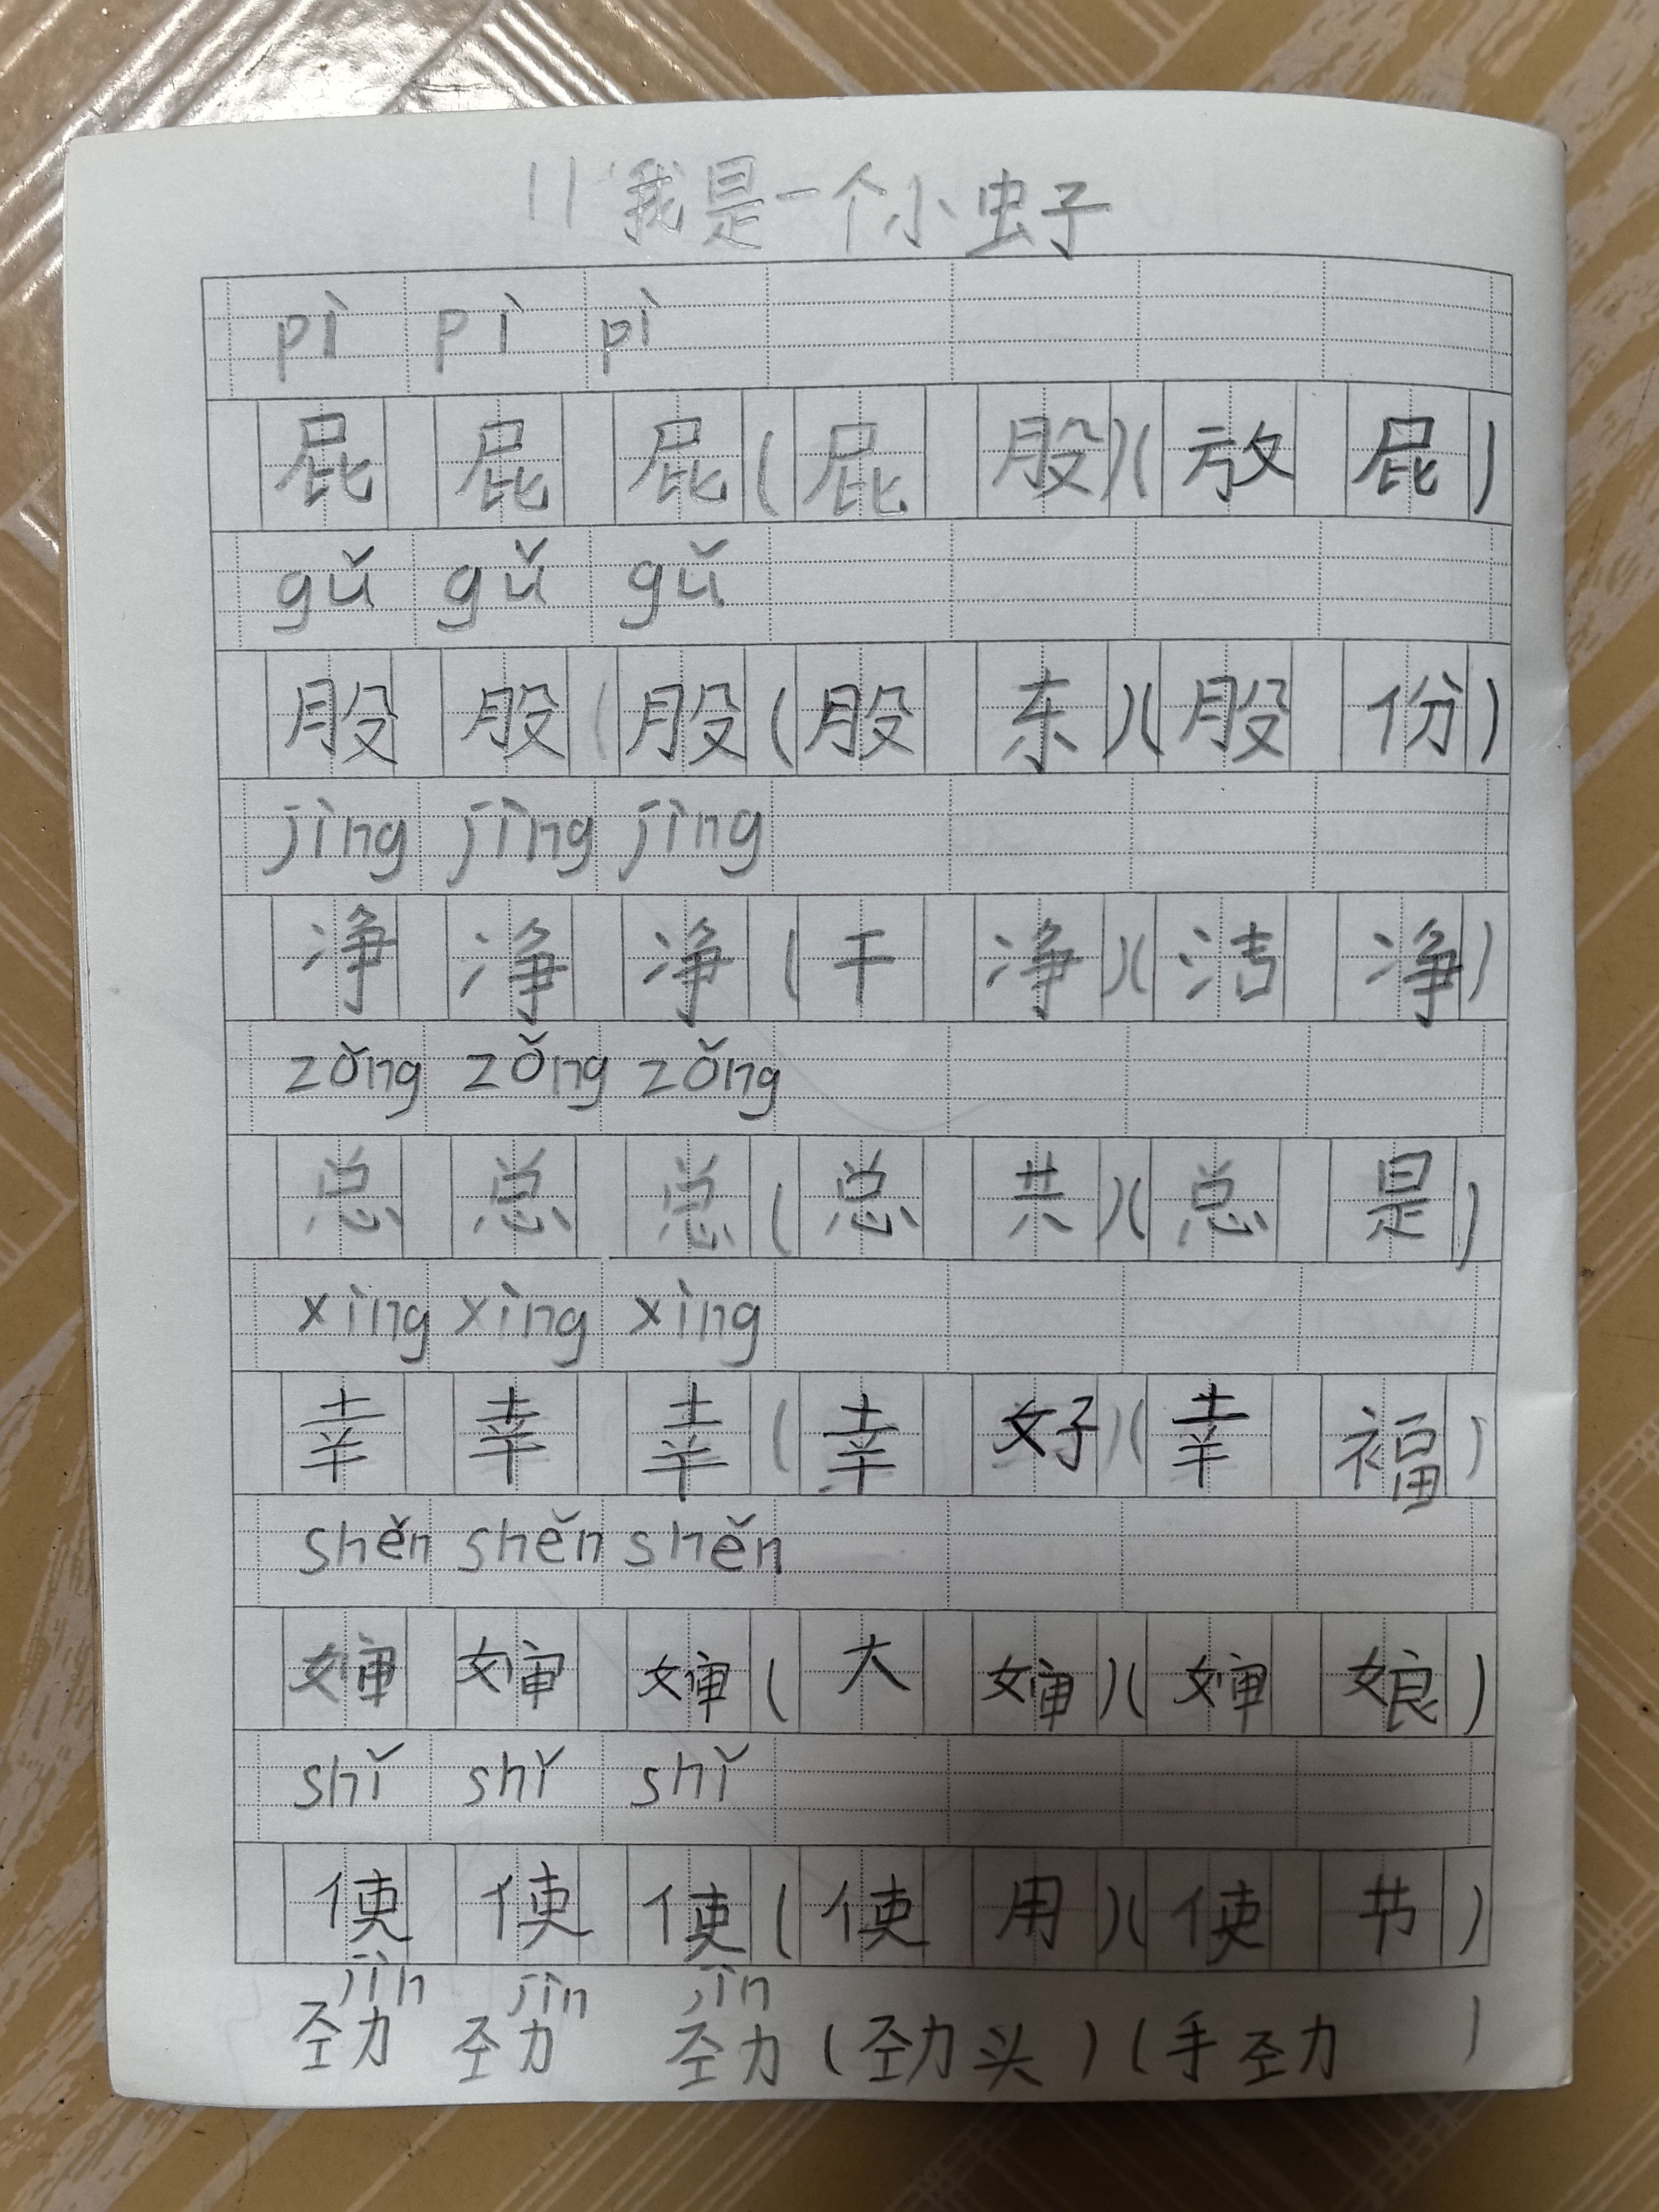 11 我是一个小虫子
pì pì pì
屁 屁 屁 (屁 股)(放 屁)
gǔ gǔ gǔ
股 股 股 (股 东)(股 份)
jìng jìng jìng
净 净 净 (干 净)(洁 净)
zǒng zǒng zǒng
总 总 总 (总 共)(总 是)
xìng xìng xìng
幸 幸 幸 (幸 好)(幸 福)
shěn shěn shěn
婶 婶 婶 (大 婶)(婶 娘)
shǐ shǐ shǐ
使 使 使 (使 用)(使 节)
jìn jìn jìn
劲 劲 劲 (劲头)(手劲)